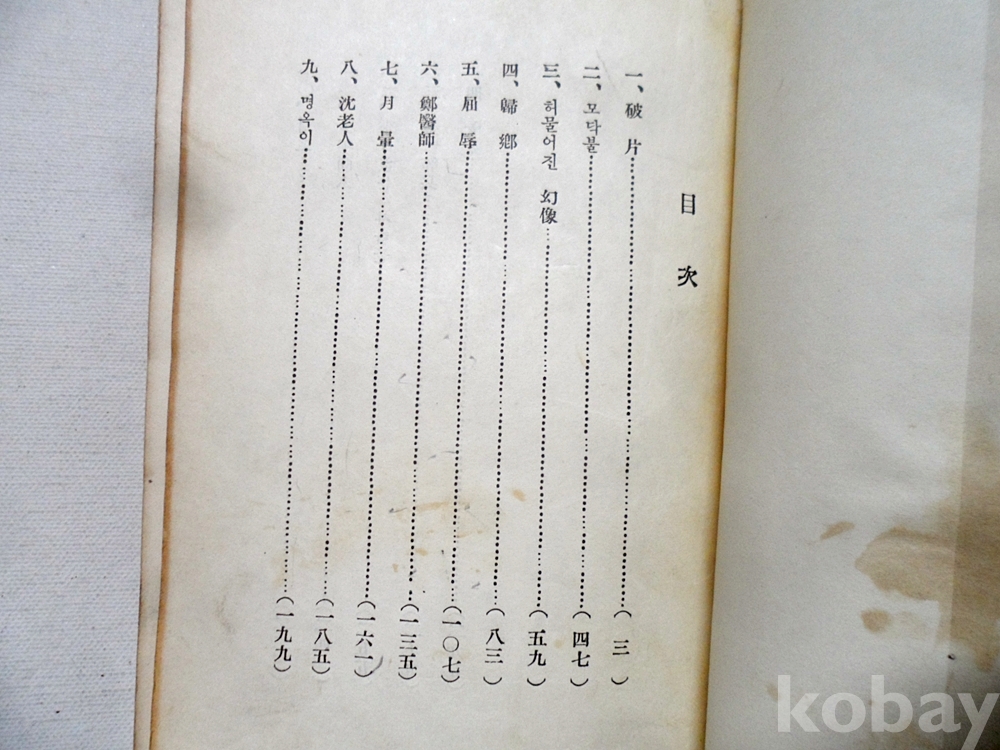 目次
一、破片 (三)
二、모닥불 (四七)
三、허물어진 幻像 (五九)
四、歸鄕 (八三)
五、屈辱 (一〇七)
六、鄭醫師 (一三五)
七、月暈 (一六一)
八、沈老人 (一八五)
九、명옥이 (一九九)
kobay